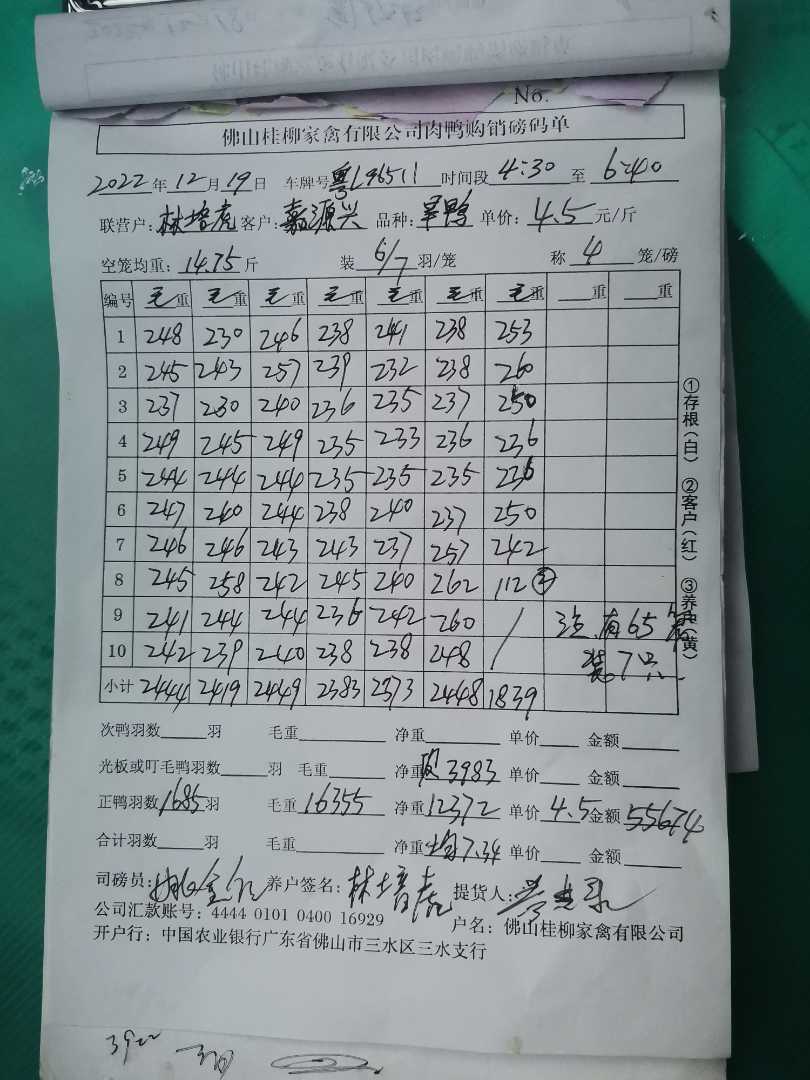 No.
佛山桂柳家禽有限公司肉鸭购销磅码单
2022年12月19日 车牌号粤L96511 时间段4:30至6:40
联营户:林培虎 客户:嘉源兴 品种:旱鸭 单价:4.5元/斤
空笼均重:14.75斤 装6/7羽/笼 称4笼/磅
编号 毛重 毛重 毛重 毛重 毛重 毛重 毛重 重 重
1 248 230 246 238 241 238 253
2 245 243 257 239 232 238 260
3 237 230 240 236 235 237 250
4 249 245 249 235 233 236 236
5 244 244 244 235 235 235 236
6 247 240 244 238 240 237 250
7 246 246 243 243 237 257 242
8 245 258 242 245 240 262 112②
9 241 244 244 236 242 260 / 注:有65笼
10 242 239 240 238 238 248 / 装7只
小计 2444 2419 2449 2383 2373 2448 1839
①存根(白) ②客户(红) ③养户(黄)
次鸭羽数 羽 毛重 净重 单价 金额
光板或叮毛鸭羽数 羽 毛重 净重 3983 单价 金额
正鸭羽数1685羽 毛重16355 净重12372 单价4.5 金额55674
合计羽数 羽 毛重 净重均7.34 单价 金额
司磅员: 养户签名:林培虎 提货人:
公司汇款账号:4444 0101 0400 16929 户名:佛山桂柳家禽有限公司
开户行:中国农业银行广东省佛山市三水区三水支行
3922